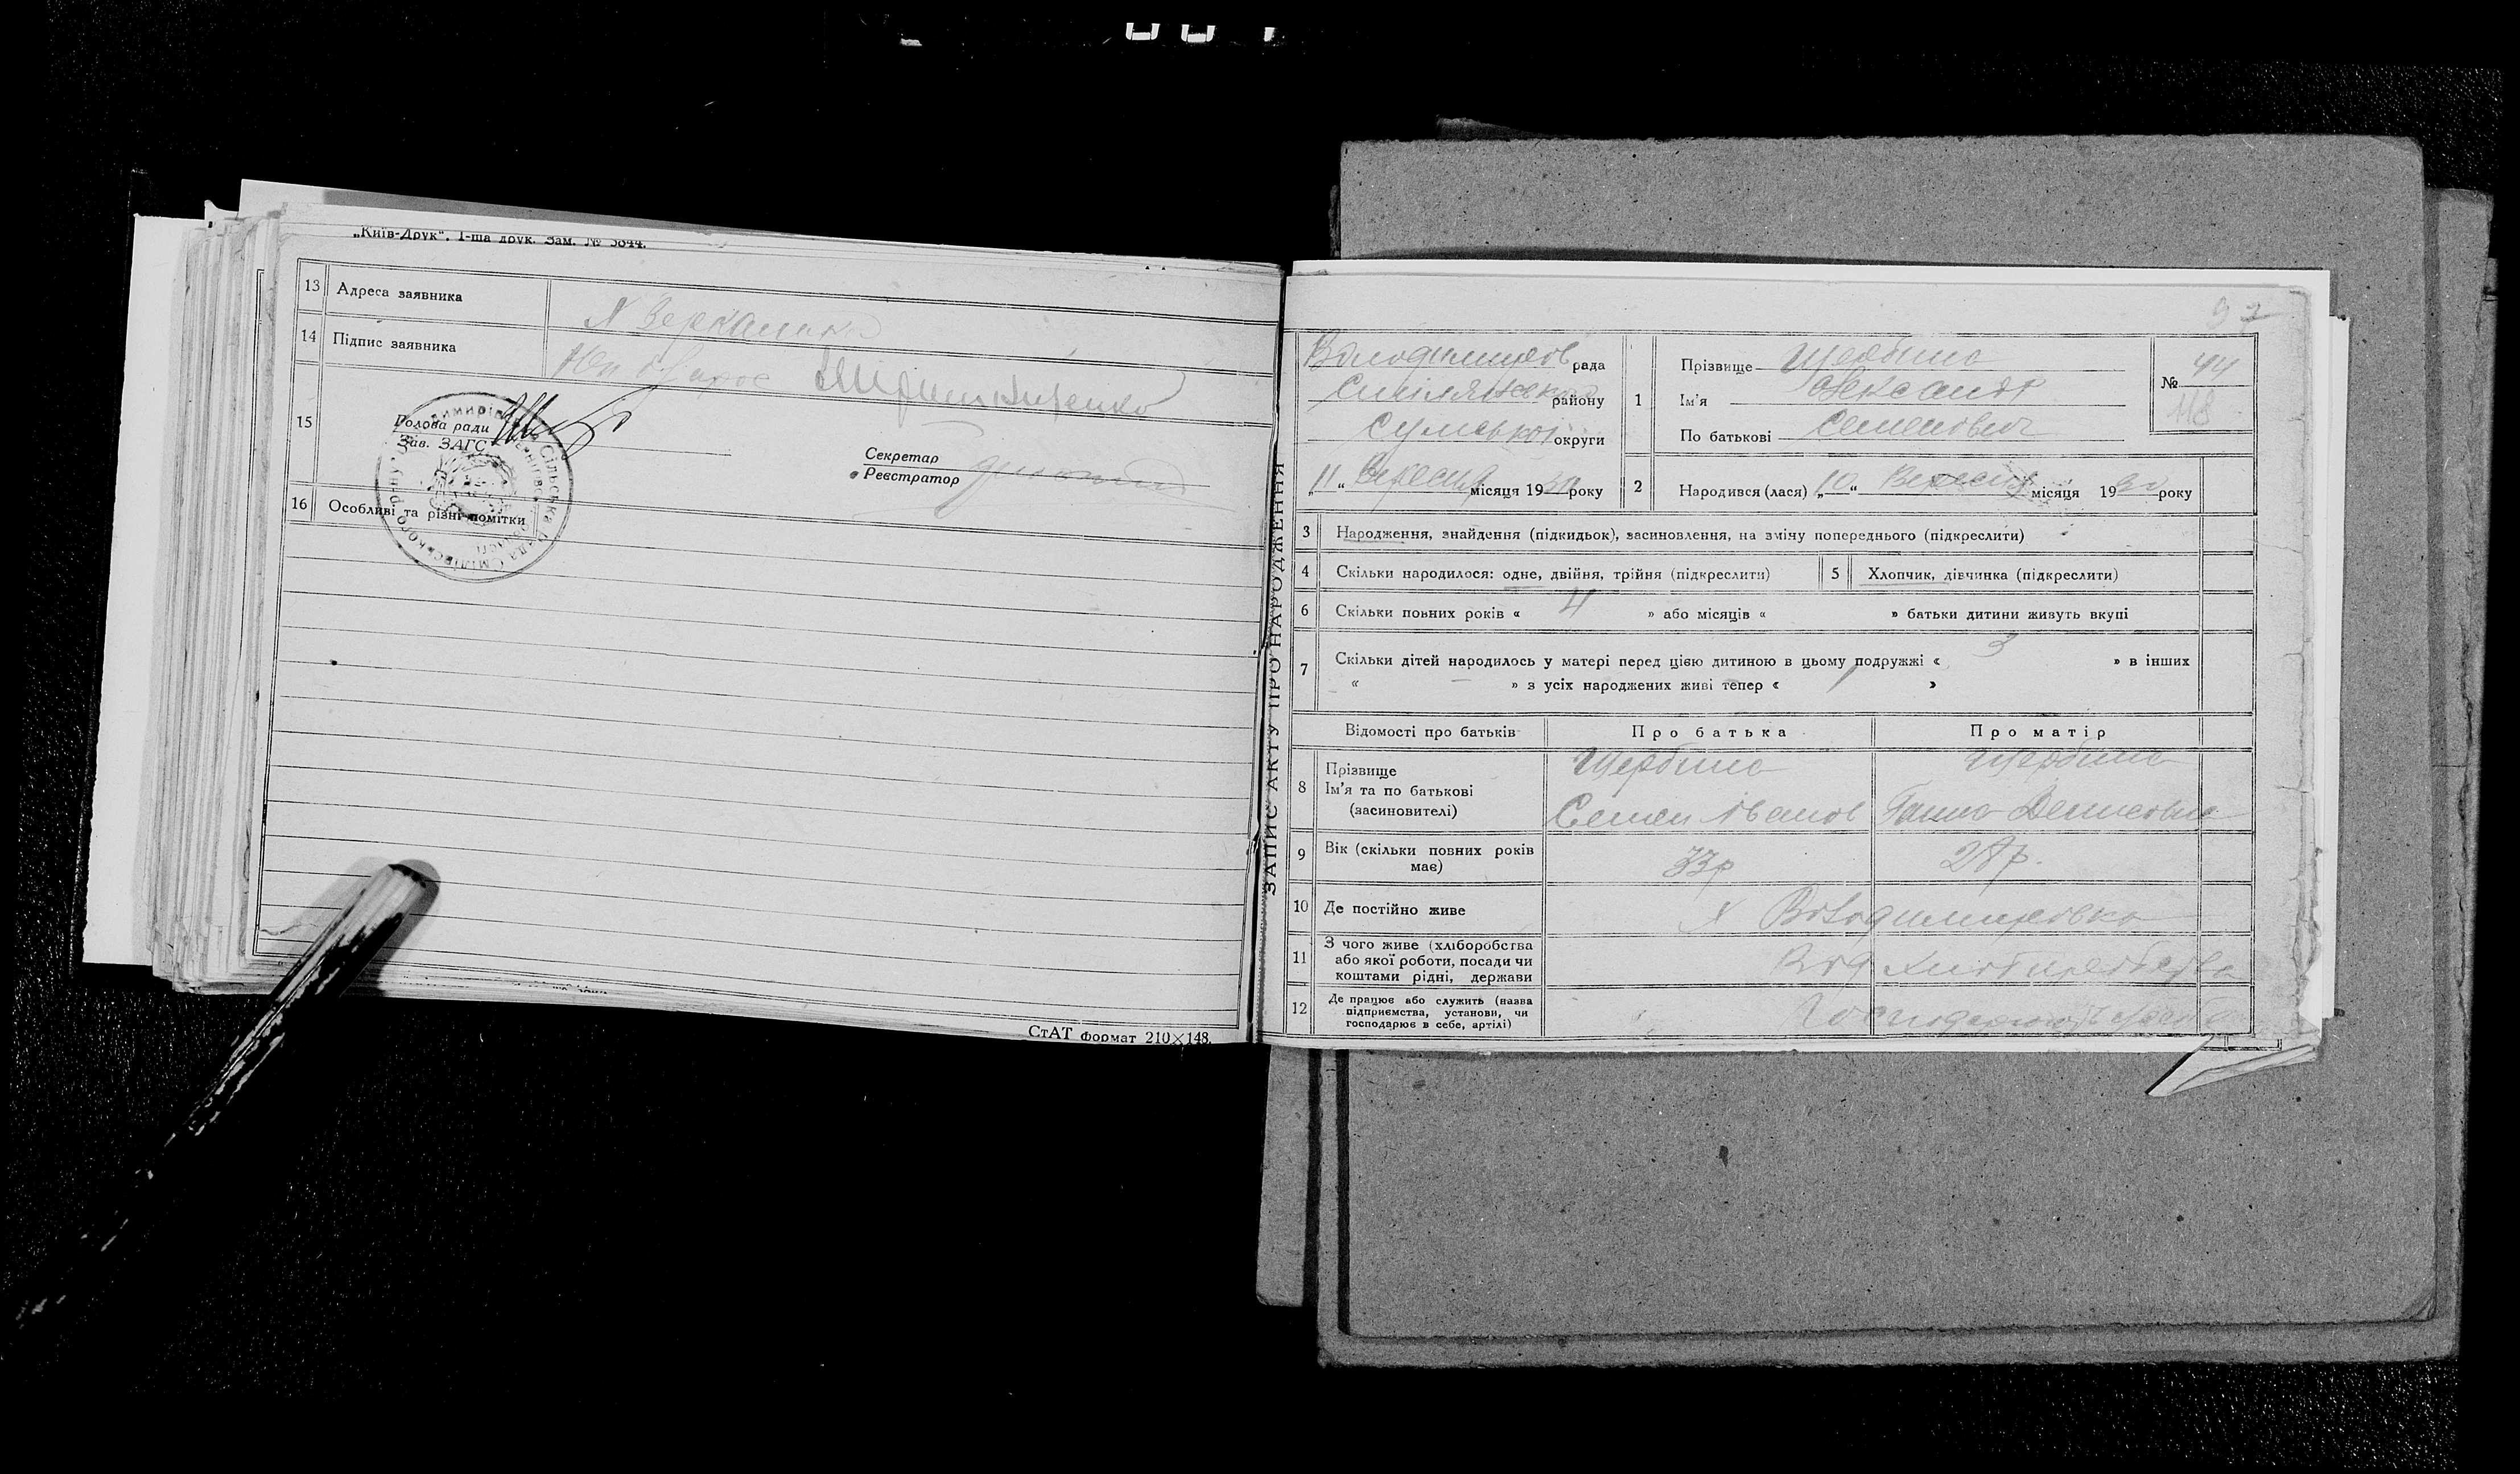 „Київ-Друк“. 1-ша друк. Зам. № 5844.
13 Адреса заявника
14 Підпис заявника
15
Голова ради
Зав. ЗАГС
Секретар
Реєстратор
16 Особливі та різні помітки
СтАТ формат 210×148.
ЗАПИС АКТУ ПРО НАРОДЖЕННЯ
97
Володимиров рада
району
Сумської округи
„11“ Вересня місяця 1930 року
1 Прізвище Щербина
Ім'я Олександр
По батькові Семенович
№ 44
118
2 Народився (лася) „10“ Вересня місяця 1930 року
3 Народження, знайдення (підкидьок), засиновлення, на зміну попереднього (підкреслити)
4 Скільки народилося: одне, двійня, трійня (підкреслити) 5 Хлопчик, дівчинка (підкреслити)
6 Скільки повних років « 4 » або місяців « » батьки дитини живуть вкупі
7 Скільки дітей народилось у матері перед цією дитиною в цьому подружжі « 3 » в інших
« — » з усіх народжених живі тепер « 1 »
Відомості про батьків Про батька Про матір
8 Прізвище Щербина Щербина
Ім'я та по батькові
(засиновителі) Семен Іванов Ганна Денисовна
9 Вік (скільки повних років
має) 33р р.
10 Де постійно живе х Володимировка
11 З чого живе (хліборобства
або якої роботи, посади чи
коштами рідні, держави
Від хліборобства
12 Де працює або служить (назва
підприємства, установи, чи
господарює в себе, артілі)